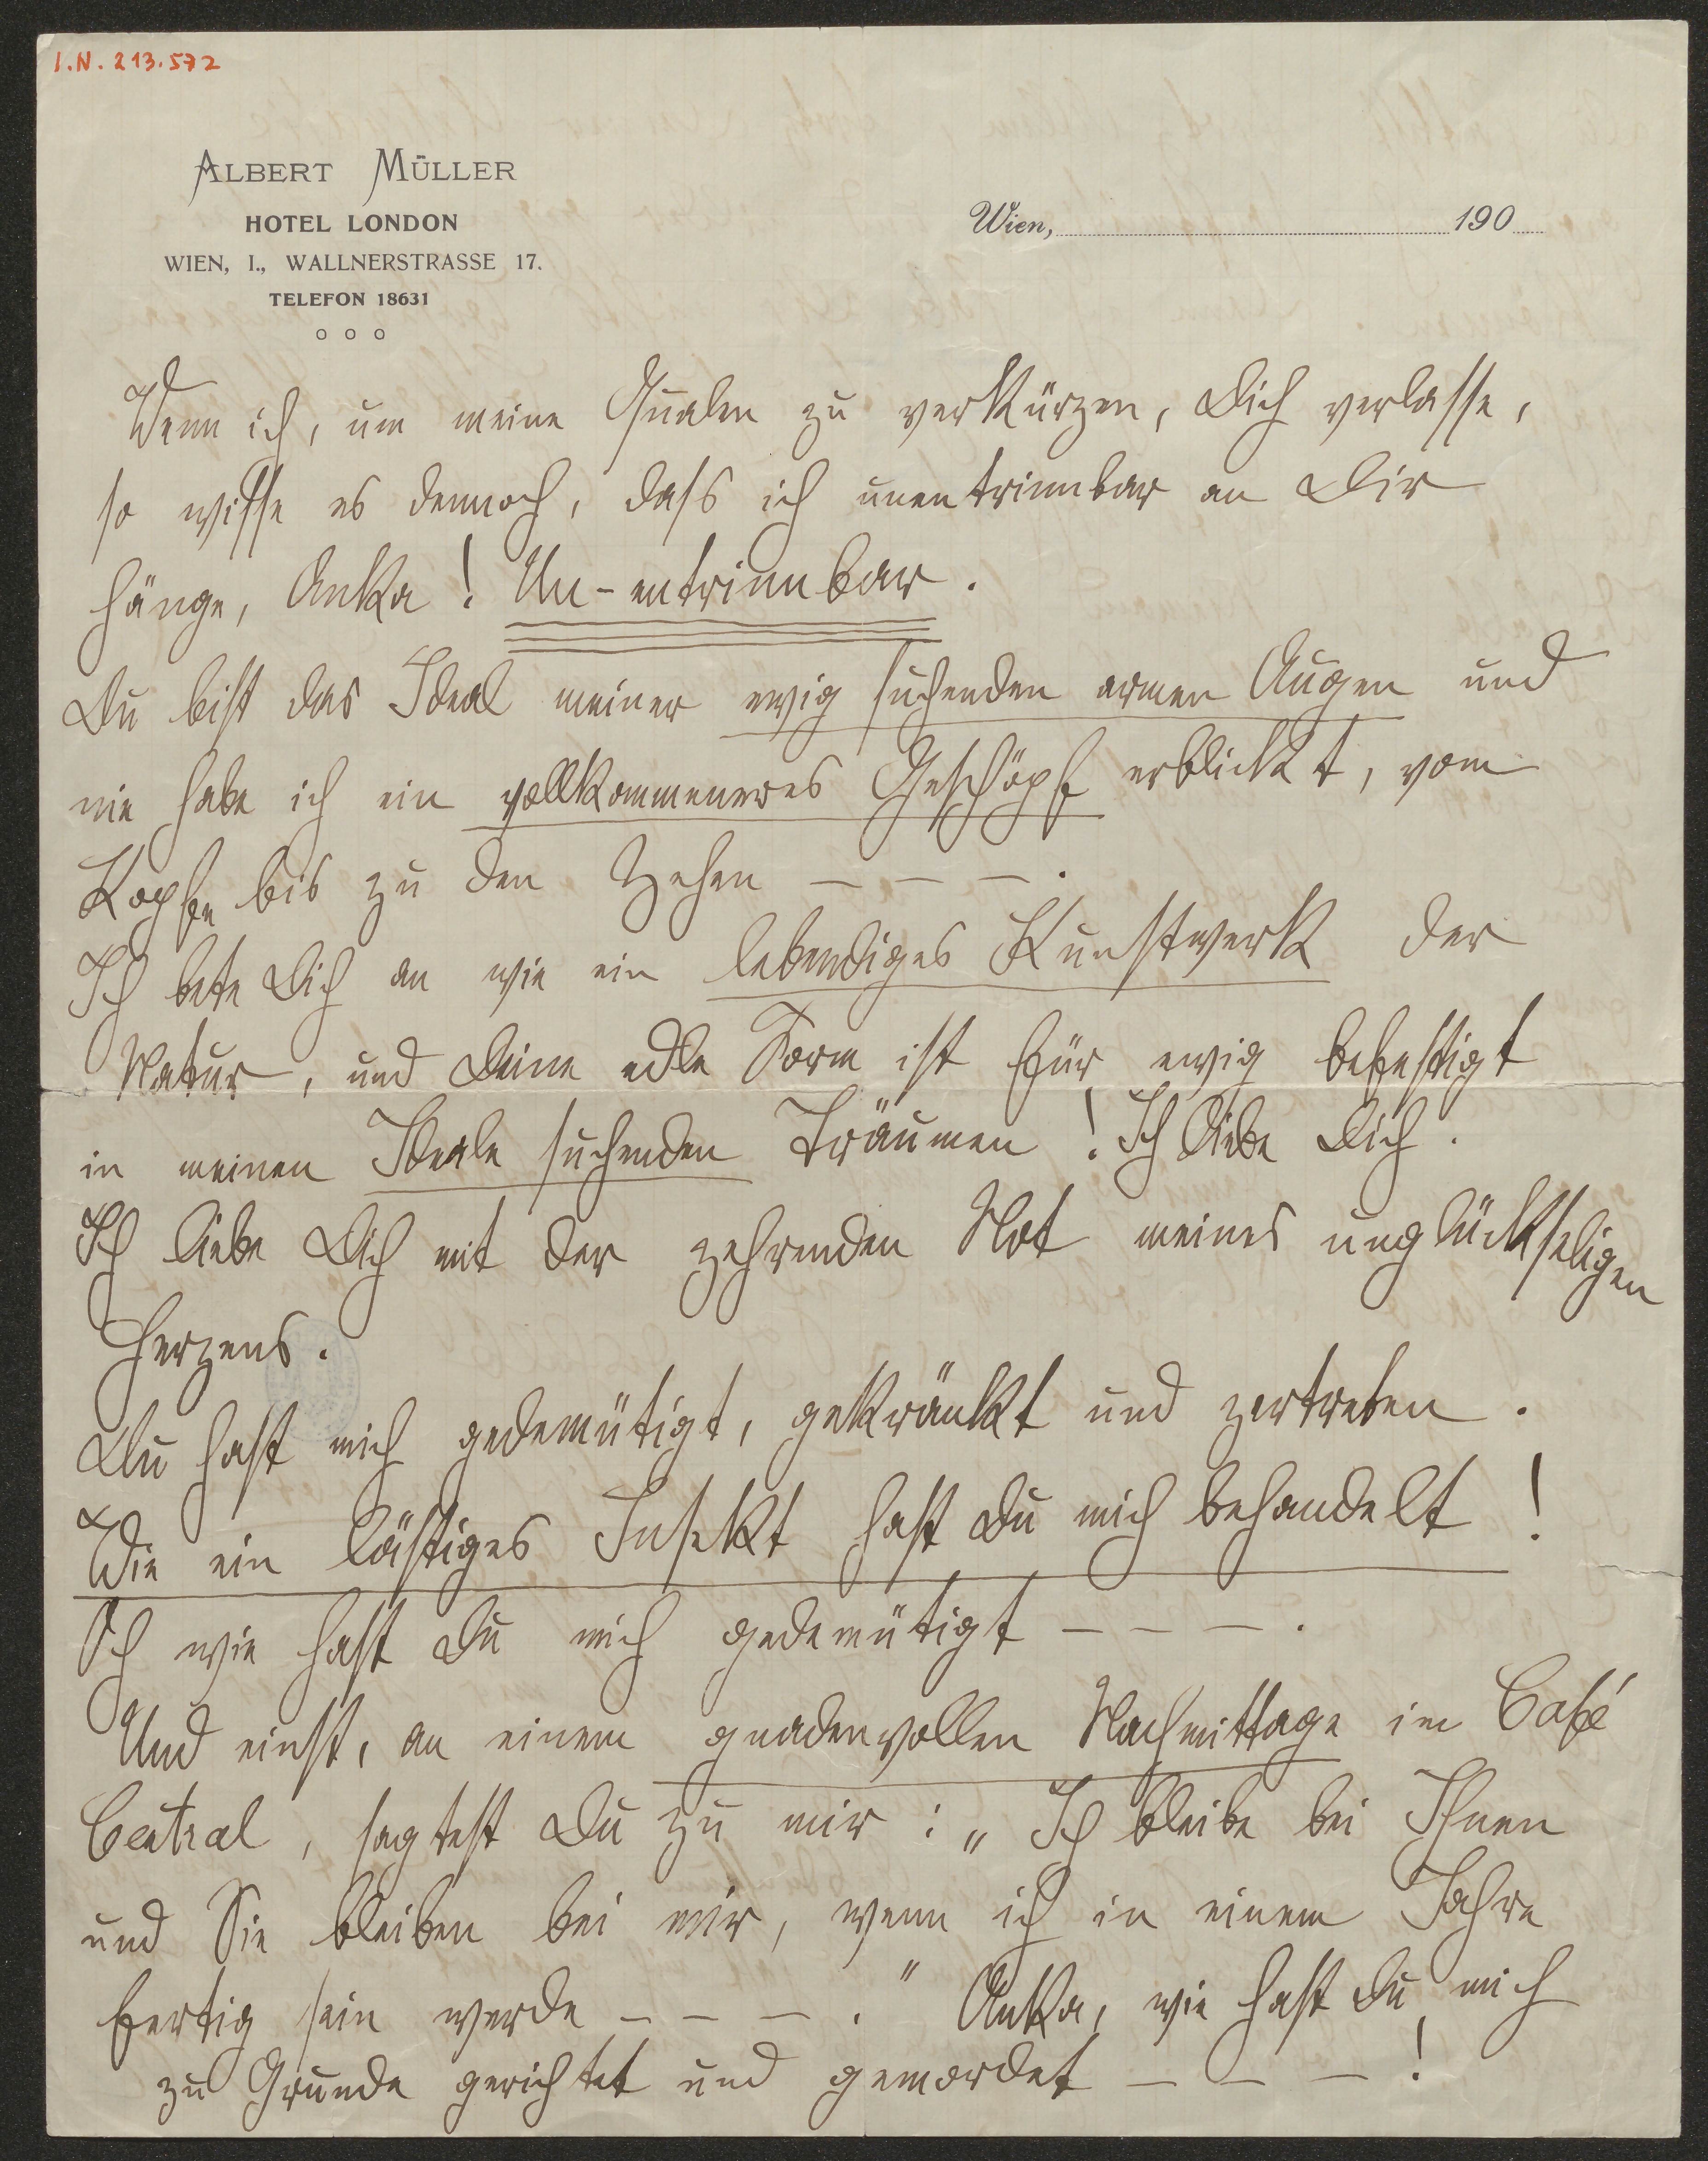 I.N. 213.572
ALBERT MÜLLER
HOTEL LONDON
WIEN, I., WALLNERSTRASSE 17.
TELEFON 18631
o o o
Wien, 190
Wenn ich, um meine Qualen zu verkürzen, Dich verlasse,
so wisse es dennoch, dass ich unentrinnbar an Dir
hänge, Anka! Un-entrinnbar.
Du bist das Ideal meiner ewig suchenden armen Augen und
nie habe ich ein vollkommeneres Geschöpf erblickt, vom
Kopfe bis zu den Zehen – – – .
Ich bete Dich an wie ein lebendiges Kunstwerk der
Natur, und Deine edle Form ist für ewig befestigt
in meinen Ideale suchenden Träumen! Ich liebe Dich.
Ich liebe Dich mit der zehrenden Not meines unglückseligen
Herzens.
Du hast mich gedemütigt, gekränkt und zertreten.
Wie ein lästiges Insekt hast Du mich behandelt!
Oh wie hast Du mich gedemütigt – – – .
Und einst, an einem gnadenvollen Nachmittage im Café
Central, sagtest Du zu mir: „Ich bleibe bei Ihnen
und Sie bleiben bei mir, wenn ich in einem Jahre
fertig sein werde – – – ." Anka, wie hast Du mich
zu Grunde gerichtet und gemordet – – – !